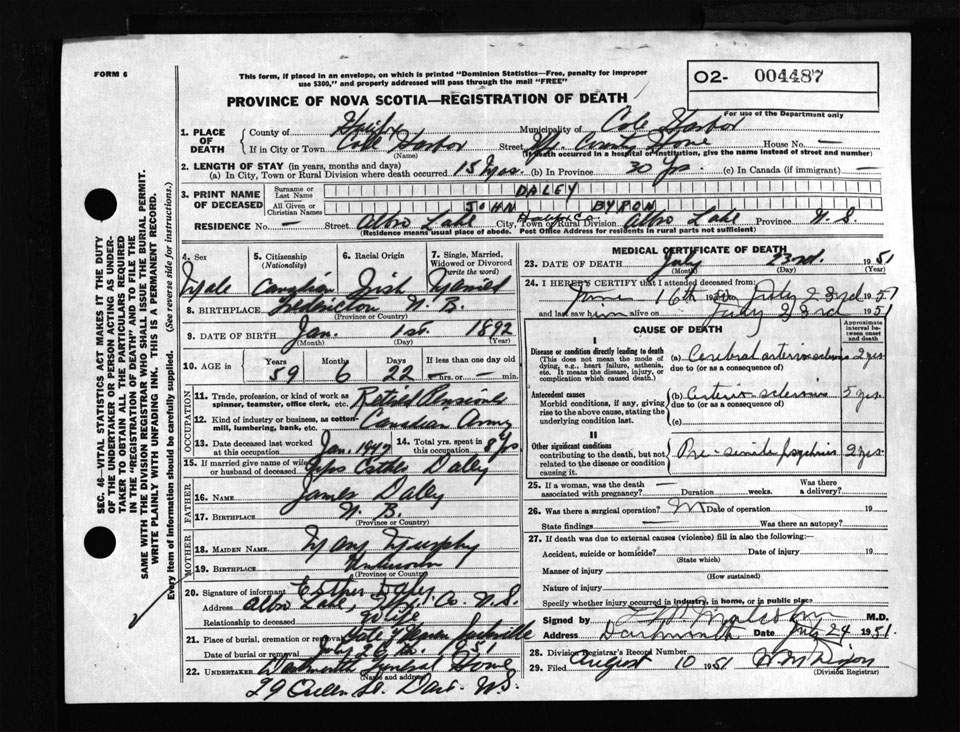 FORM 6
This form, if placed in an envelope, on which is printed "Dominion Statistics—Free, penalty for improper
use $300," and properly addressed will pass through the mail "FREE"
O2- 004487
For use of the Department only
PROVINCE OF NOVA SCOTIA—REGISTRATION OF DEATH
1. PLACE OF DEATH
County of Halifax Municipality of Cole Harbor
If in City or Town Cole Harbor (Name) Street Hfx. County Home House No. —
(If death occurred in a hospital or institution, give the name instead of street and number)
2. LENGTH OF STAY (in years, months and days)
(a) In City, Town or Rural Division where death occurred 15 (b) In Province 30 yrs. (c) In Canada (if immigrant) —
3. PRINT NAME OF DECEASED
Surname or Last Name DALEY
All Given or Christian Names JOHN BYRON
RESIDENCE No. — Street Albro Lake City, Town or Rural Division Halifax Co. Albro Lake Province N.S.
(Residence means usual place of abode. Post Office Address for residents in rural parts not sufficient)
4. Sex Male
5. Citizenship (Nationality) Canadian
6. Racial Origin Irish
7. Single, Married, Widowed or Divorced (write the word) Married
8. BIRTHPLACE Fredericton N.B.
(Province or Country)
9. DATE OF BIRTH Jan. 1st. 1892
(Month) (Day) (Year)
10. AGE in Years 59 Months 6 Days 22 If less than one day — hrs. or — min.
OCCUPATION
11. Trade, profession, or kind of work as spinner, teamster, office clerk, etc. Retired
12. Kind of industry or business, as cotton-mill, lumbering, bank, etc. Canadian Army
13. Date deceased last worked at this occupation Jan. 1947 14. Total yrs. spent in this occupation 8 yrs
15. If married give name of wife or husband of deceased Esther Daley
FATHER
16. NAME James Daley
17. BIRTHPLACE N.B.
(Province or Country)
MOTHER
18. MAIDEN NAME Mary Murphy
19. BIRTHPLACE Unknown
(Province or Country)
20. Signature of informant Esther Daley
Address Albro Lake, Hfx. Co. N.S.
Relationship to deceased Wife
21. Place of burial, cremation or removal Gate of Heaven Sackville
Date of burial or removal July 26th. 1951
22. UNDERTAKER Dartmouth Funeral Home
(Name and address)
29 Queen St. Dart. N.S.
MEDICAL CERTIFICATE OF DEATH
23. DATE OF DEATH July 23rd. 1951
(Month) (Day) (Year)
24. I HEREBY CERTIFY that I attended deceased from:
June 16th 1951 to July 23rd 1951
and last saw him alive on July 23rd 1951
CAUSE OF DEATH
Approximate interval between onset and death
I
Disease or condition directly leading to death
(This does not mean the mode of dying, e.g., heart failure, asthenia, etc. It means the disease, injury, or complication which caused death.)
(a) Cerebral arteriosclerosis 2 yrs.
due to (or as a consequence of)
Antecedent causes
Morbid conditions, if any, giving rise to the above cause, stating the underlying condition last.
(b) Arteriosclerosis 5 yrs.
due to (or as a consequence of)
(c)
II
Other significant conditions
contributing to the death, but not related to the disease or condition causing it.
Pre-senile psychosis 2 yrs.
25. If a woman, was the death associated with pregnancy? — Duration weeks. Was there a delivery?
26. Was there a surgical operation? Date of operation 19
State findings — Was there an autopsy?
27. If death was due to external causes (violence) fill in also the following:—
Accident, suicide or homicide? (State which) Date of injury 19
Manner of injury (How sustained)
Nature of injury
Specify whether injury occurred in industry, in home, or in public place
Signed by Malcolm M.D.
Address Dartmouth Date July 24 1951.
28. Division Registrar's Record Number
29. Filed August 10 1951 Dixon
(Division Registrar)
SEC. 46—VITAL STATISTICS ACT MAKES IT THE DUTY
OF THE UNDERTAKER OR PERSON ACTING AS UNDER-
TAKER TO OBTAIN ALL THE PARTICULARS REQUIRED
IN THE "REGISTRATION OF DEATH" AND TO FILE THE
SAME WITH THE DIVISION REGISTRAR WHO SHALL ISSUE THE BURIAL PERMIT.
WRITE PLAINLY WITH UNFADING INK. THIS IS A PERMANENT RECORD.
Every item of Information should be carefully supplied. (See reverse side for instructions.)